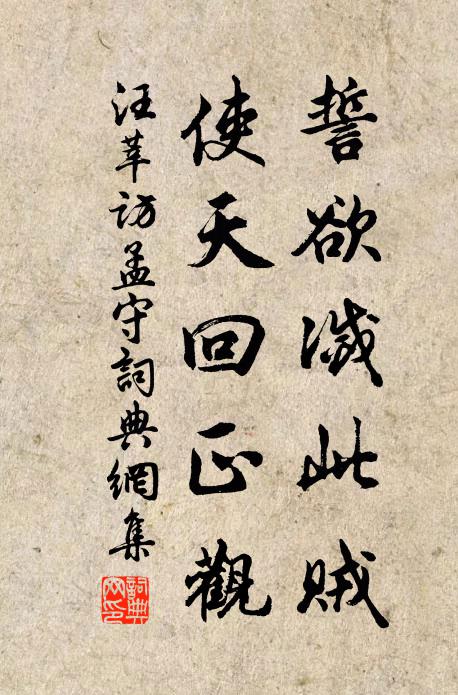 誓欲滅此賊
使天回正觀
汪莘訪孟守詞典網集
詞典網印